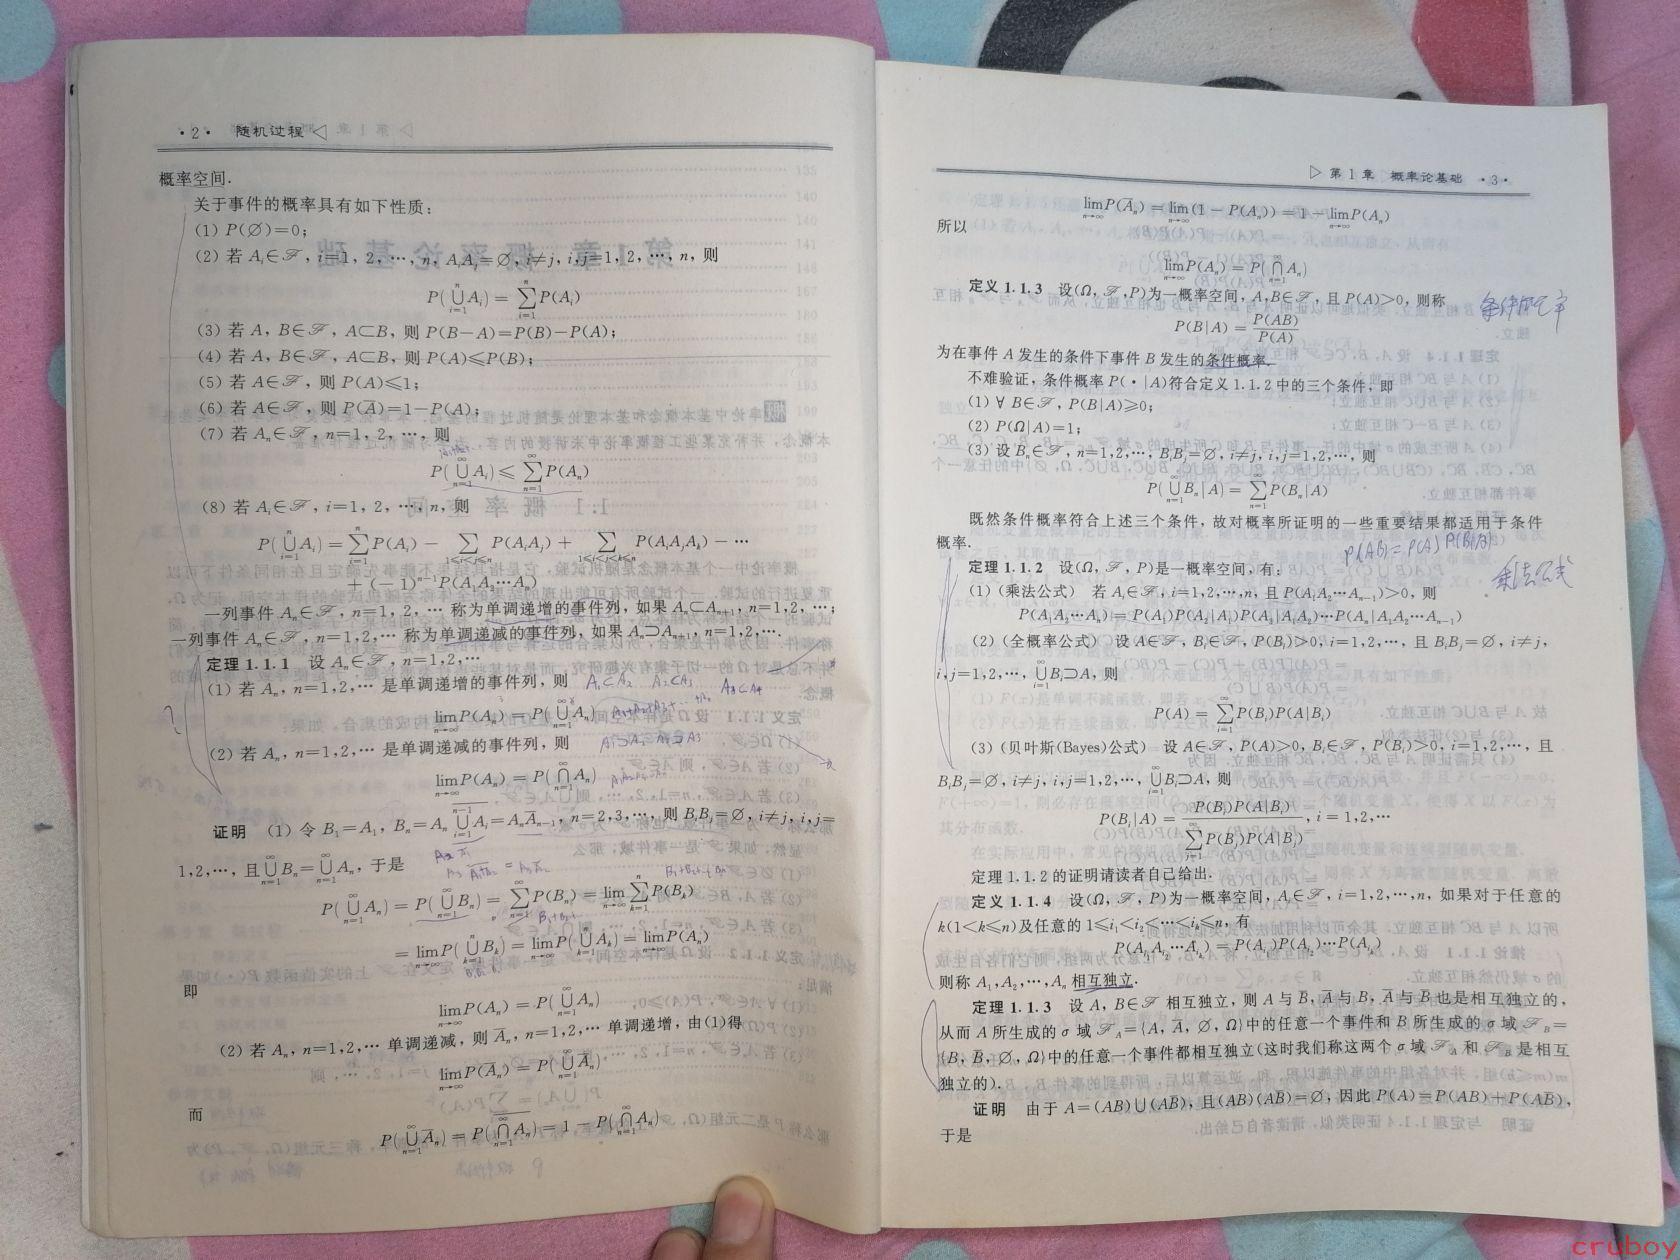 ·2· 随机过程 ◁
概率空间.
关于事件的概率具有如下性质:
(1) P(∅)=0;
(2) 若 Aᵢ∈ℱ, i=1, 2, …, n, AᵢAⱼ=∅, i≠j, i,j=1, 2, …, n, 则
P(⋃ᵢ₌₁ⁿ Aᵢ) = ∑ᵢ₌₁ⁿ P(Aᵢ)
(3) 若 A, B∈ℱ, A⊂B, 则 P(B−A)=P(B)−P(A);
(4) 若 A, B∈ℱ, A⊂B, 则 P(A)≤P(B);
(5) 若 A∈ℱ, 则 P(A)≤1;
(6) 若 A∈ℱ, 则 P(A̅)=1−P(A);
(7) 若 Aₙ∈ℱ, n=1, 2, …, 则
P(⋃ₙ₌₁^∞ Aᵢ) ≤ ∑ₙ₌₁^∞ P(Aₙ)
(8) 若 Aᵢ∈ℱ, i=1, 2, …, n, 则
P(⋃ᵢ₌₁ⁿ Aᵢ) = ∑ᵢ₌₁ⁿ P(Aᵢ) − ∑_{1≤i<j≤n} P(AᵢAⱼ) + ∑_{1≤i<j<k≤n} P(AᵢAⱼAₖ) − …
+ (−1)ⁿ⁻¹P(A₁A₂…Aₙ)
一列事件 Aₙ∈ℱ, n=1, 2, … 称为单调递增的事件列, 如果 Aₙ⊂Aₙ₊₁, n=1,2,…;
一列事件 Aₙ∈ℱ, n=1,2,… 称为单调递减的事件列, 如果 Aₙ⊃Aₙ₊₁, n=1,2,….
定理 1.1.1 设 Aₙ∈ℱ, n=1,2,…
(1) 若 Aₙ, n=1,2,… 是单调递增的事件列, 则 A₁⊂A₂ A₂⊂A₃ A₃⊂A₄
lim_{n→∞} P(Aₙ) = P(⋃ₙ₌₁^∞ Aₙ)
(2) 若 Aₙ, n=1,2,… 是单调递减的事件列, 则
lim_{n→∞} P(Aₙ) = P(⋂ₙ₌₁^∞ Aₙ)
证明 (1) 令 B₁=A₁, Bₙ=Aₙ \overline{⋃ᵢ₌₁ⁿ⁻¹ Aᵢ}=AₙA̅ₙ₋₁, n=2,3,…, 则 BᵢBⱼ=∅, i≠j, i,j=
1,2,…, 且⋃ₙ₌₁^∞ Bₙ=⋃ₙ₌₁^∞ Aₙ, 于是
P(⋃ₙ₌₁^∞ Aₙ) = P(⋃ₙ₌₁^∞ Bₙ) = ∑ₙ₌₁^∞ P(Bₙ) = lim_{n→∞} ∑ₖ₌₁ⁿ P(Bₖ)
= lim_{n→∞} P(⋃ₖ₌₁ⁿ Bₖ) = lim_{n→∞} P(⋃ₖ₌₁ⁿ Aₖ) = lim_{n→∞} P(Aₙ)
即
lim_{n→∞} P(Aₙ) = P(⋃ₙ₌₁^∞ Aₙ)
(2) 若 Aₙ, n=1,2,… 单调递减, 则 A̅ₙ, n=1,2,… 单调递增, 由(1)得
lim_{n→∞} P(A̅ₙ) = P(⋃ₙ₌₁^∞ A̅ₙ)
而
P(⋃ₙ₌₁^∞ A̅ₙ) = P(\overline{⋂ₙ₌₁^∞ Aₙ}) = 1 − P(⋂ₙ₌₁^∞ Aₙ)
▷ 第 1 章 概率论基础 ·3·
lim_{n→∞} P(A̅ₙ) = lim_{n→∞} (1 − P(Aₙ)) = 1 − lim_{n→∞} P(Aₙ)
所以
lim_{n→∞} P(Aₙ) = P(⋂ₙ₌₁^∞ Aₙ)
定义 1.1.3 设(Ω, ℱ, P)为一概率空间, A, B∈ℱ, 且 P(A)>0, 则称 条件概率
P(B|A) = P(AB)/P(A)
为在事件 A 发生的条件下事件 B 发生的条件概率.
不难验证, 条件概率 P(·|A)符合定义 1.1.2 中的三个条件, 即
(1) ∀ B∈ℱ, P(B|A)≥0;
(2) P(Ω|A)=1;
(3) 设 Bₙ∈ℱ, n=1,2,…, BᵢBⱼ=∅, i≠j, i,j=1,2,…, 则
P(⋃ₙ₌₁^∞ Bₙ|A) = ∑ₙ₌₁^∞ P(Bₙ|A)
既然条件概率符合上述三个条件, 故对概率所证明的一些重要结果都适用于条件
概率. P(AB)=P(A)P(B|A)
定理 1.1.2 设(Ω, ℱ, P)是一概率空间, 有: 乘法公式
(1) (乘法公式) 若 Aᵢ∈ℱ, i=1,2,…,n, 且 P(A₁A₂…Aₙ₋₁)>0, 则
P(A₁A₂…Aₙ) = P(A₁)P(A₂|A₁)P(A₃|A₁A₂)…P(Aₙ|A₁A₂…Aₙ₋₁)
(2) (全概率公式) 设 A∈ℱ, Bᵢ∈ℱ, P(Bᵢ)>0, i=1,2,…, 且 BᵢBⱼ=∅, i≠j,
i,j=1,2,…, ⋃ᵢ₌₁^∞ Bᵢ⊃A, 则
P(A) = ∑ᵢ₌₁^∞ P(Bᵢ)P(A|Bᵢ)
(3) (贝叶斯(Bayes)公式) 设 A∈ℱ, P(A)>0, Bᵢ∈ℱ, P(Bᵢ)>0, i=1,2,…, 且
BᵢBⱼ=∅, i≠j, i,j=1,2,…, ⋃ᵢ₌₁^∞ Bᵢ⊃A, 则
P(Bᵢ|A) = P(Bᵢ)P(A|Bᵢ)/∑ᵢ₌₁^∞ P(Bⱼ)P(A|Bⱼ), i = 1,2,…
定理 1.1.2 的证明请读者自己给出.
定义 1.1.4 设(Ω, ℱ, P)为一概率空间, Aᵢ∈ℱ, i=1,2,…,n, 如果对于任意的
k(1<k≤n)及任意的 1≤i₁<i₂<…<iₖ≤n, 有
P(A_{i₁}A_{i₂}…A_{iₖ}) = P(A_{i₁})P(A_{i₂})…P(A_{iₖ})
则称 A₁,A₂,…,Aₙ 相互独立.
定理 1.1.3 设 A, B∈ℱ 相互独立, 则 A 与 B̅, A̅ 与 B, A̅ 与 B̅ 也是相互独立的,
从而 A 所生成的 σ 域 ℱ_A={A, A̅, ∅, Ω}中的任意一个事件和 B 所生成的 σ 域 ℱ_B=
{B, B̅, ∅, Ω}中的任意一个事件都相互独立(这时我们称这两个 σ 域 ℱ_A 和 ℱ_B 是相互
独立的).
证明 由于 A=(AB)∪(AB̅), 且(AB)(AB̅)=∅, 因此 P(A)=P(AB)+P(AB̅),
于是
cruboy